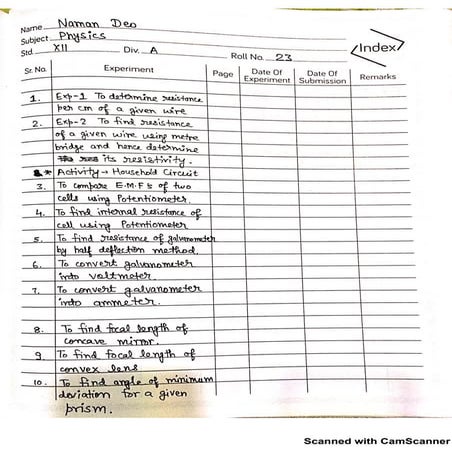 Name Naman Deo
Subject Physics
Std XII Div. A Roll No. 23
<Index>
Sr. No. Experiment Page Date Of Experiment Date Of Submission Remarks
1. Exp-1 To determine resistance
per cm of a given wire
2. Exp-2 To find resistance
of a given wire using metre
bridge and hence determine
its resistivity.
* Activity → Household Circuit
3. To compare E.M.F's of two
cells using Potentiometer.
4. To find internal resistance of
cell using Potentiometer
5. To find resistance of galvanometer
by half deflection method.
6. To convert galvanometer
into voltmeter.
7. To convert galvanometer
into ammeter.
8. To find focal length of
concave mirror.
9. To find focal length of
convex lens
10. To find angle of minimum
deviation for a given
prism.
Scanned with CamScanner